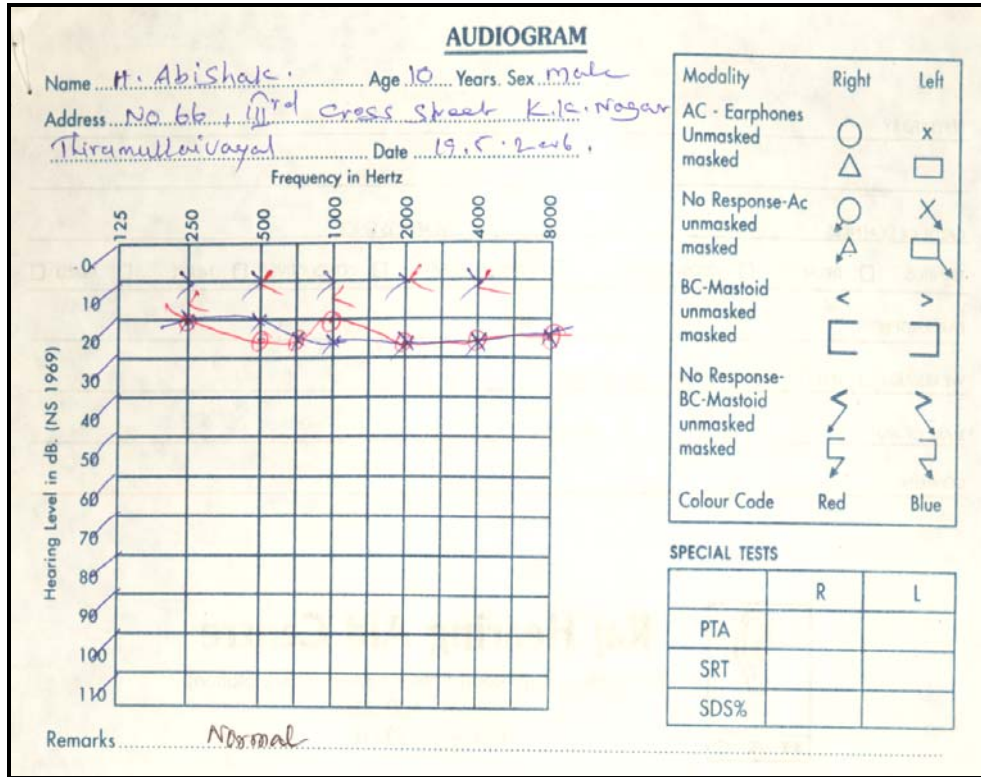 AUDIOGRAM
Name H. Abishak. Age 10 Years. Sex male
Address No 66, IIIrd Cross Street K.K. Nagar
Thirumullaivayal Date 19.5.2006.
Frequency in Hertz
125 250 500 1000 2000 4000 8000
Hearing Level in dB (NS 1969)
0
10
20
30
40
50
60
70
80
90
100
110
Remarks Normal
Modality Right Left
AC - Earphones
Unmasked
masked
No Response-Ac
unmasked
masked
BC-Mastoid
unmasked
masked
No Response-
BC-Mastoid
unmasked
masked
Colour Code Red Blue
SPECIAL TESTS
R L
PTA
SRT
SDS%